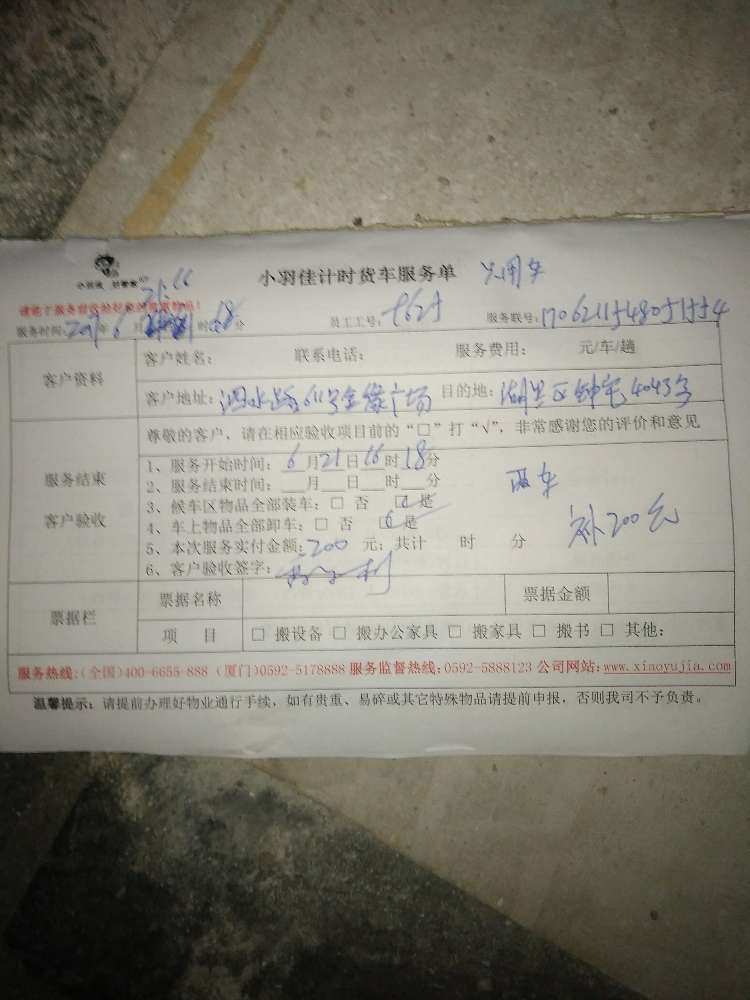 小羽佳计时货车服务单
服务时间: 年 6 月 时 18 分 员工工号: 服务联号:
客户资料
客户姓名: 联系电话: 服务费用: 元/车/趟
客户地址:泗水道611号金缘广场 目的地:湖里区钟宅4043号
尊敬的客户,请在相应验收项目前的“□”打“√”,非常感谢您的评价和意见
服务结束
客户验收
1、服务开始时间: 6月21日16时18分
2、服务结束时间:___月___日___时___分
3、候车区物品全部装车:□ 否 □是
4、车上物品全部卸车:□ 否 □是
5、本次服务实付金额:200 元;共计 时 分
补200元
6、客户验收签字:
票据栏
票据名称 票据金额
项 目 □ 搬设备 □ 搬办公家具 □ 搬家具 □ 搬书 □ 其他:
服务热线:(全国)400-6655-888 (厦门)0592-5178888 服务监督热线:0592-5888123 公司网站:www.xinoyujia.com
温馨提示:请提前办理好物业通行手续,如有贵重、易碎或其它特殊物品请提前申报,否则我司不予负责。